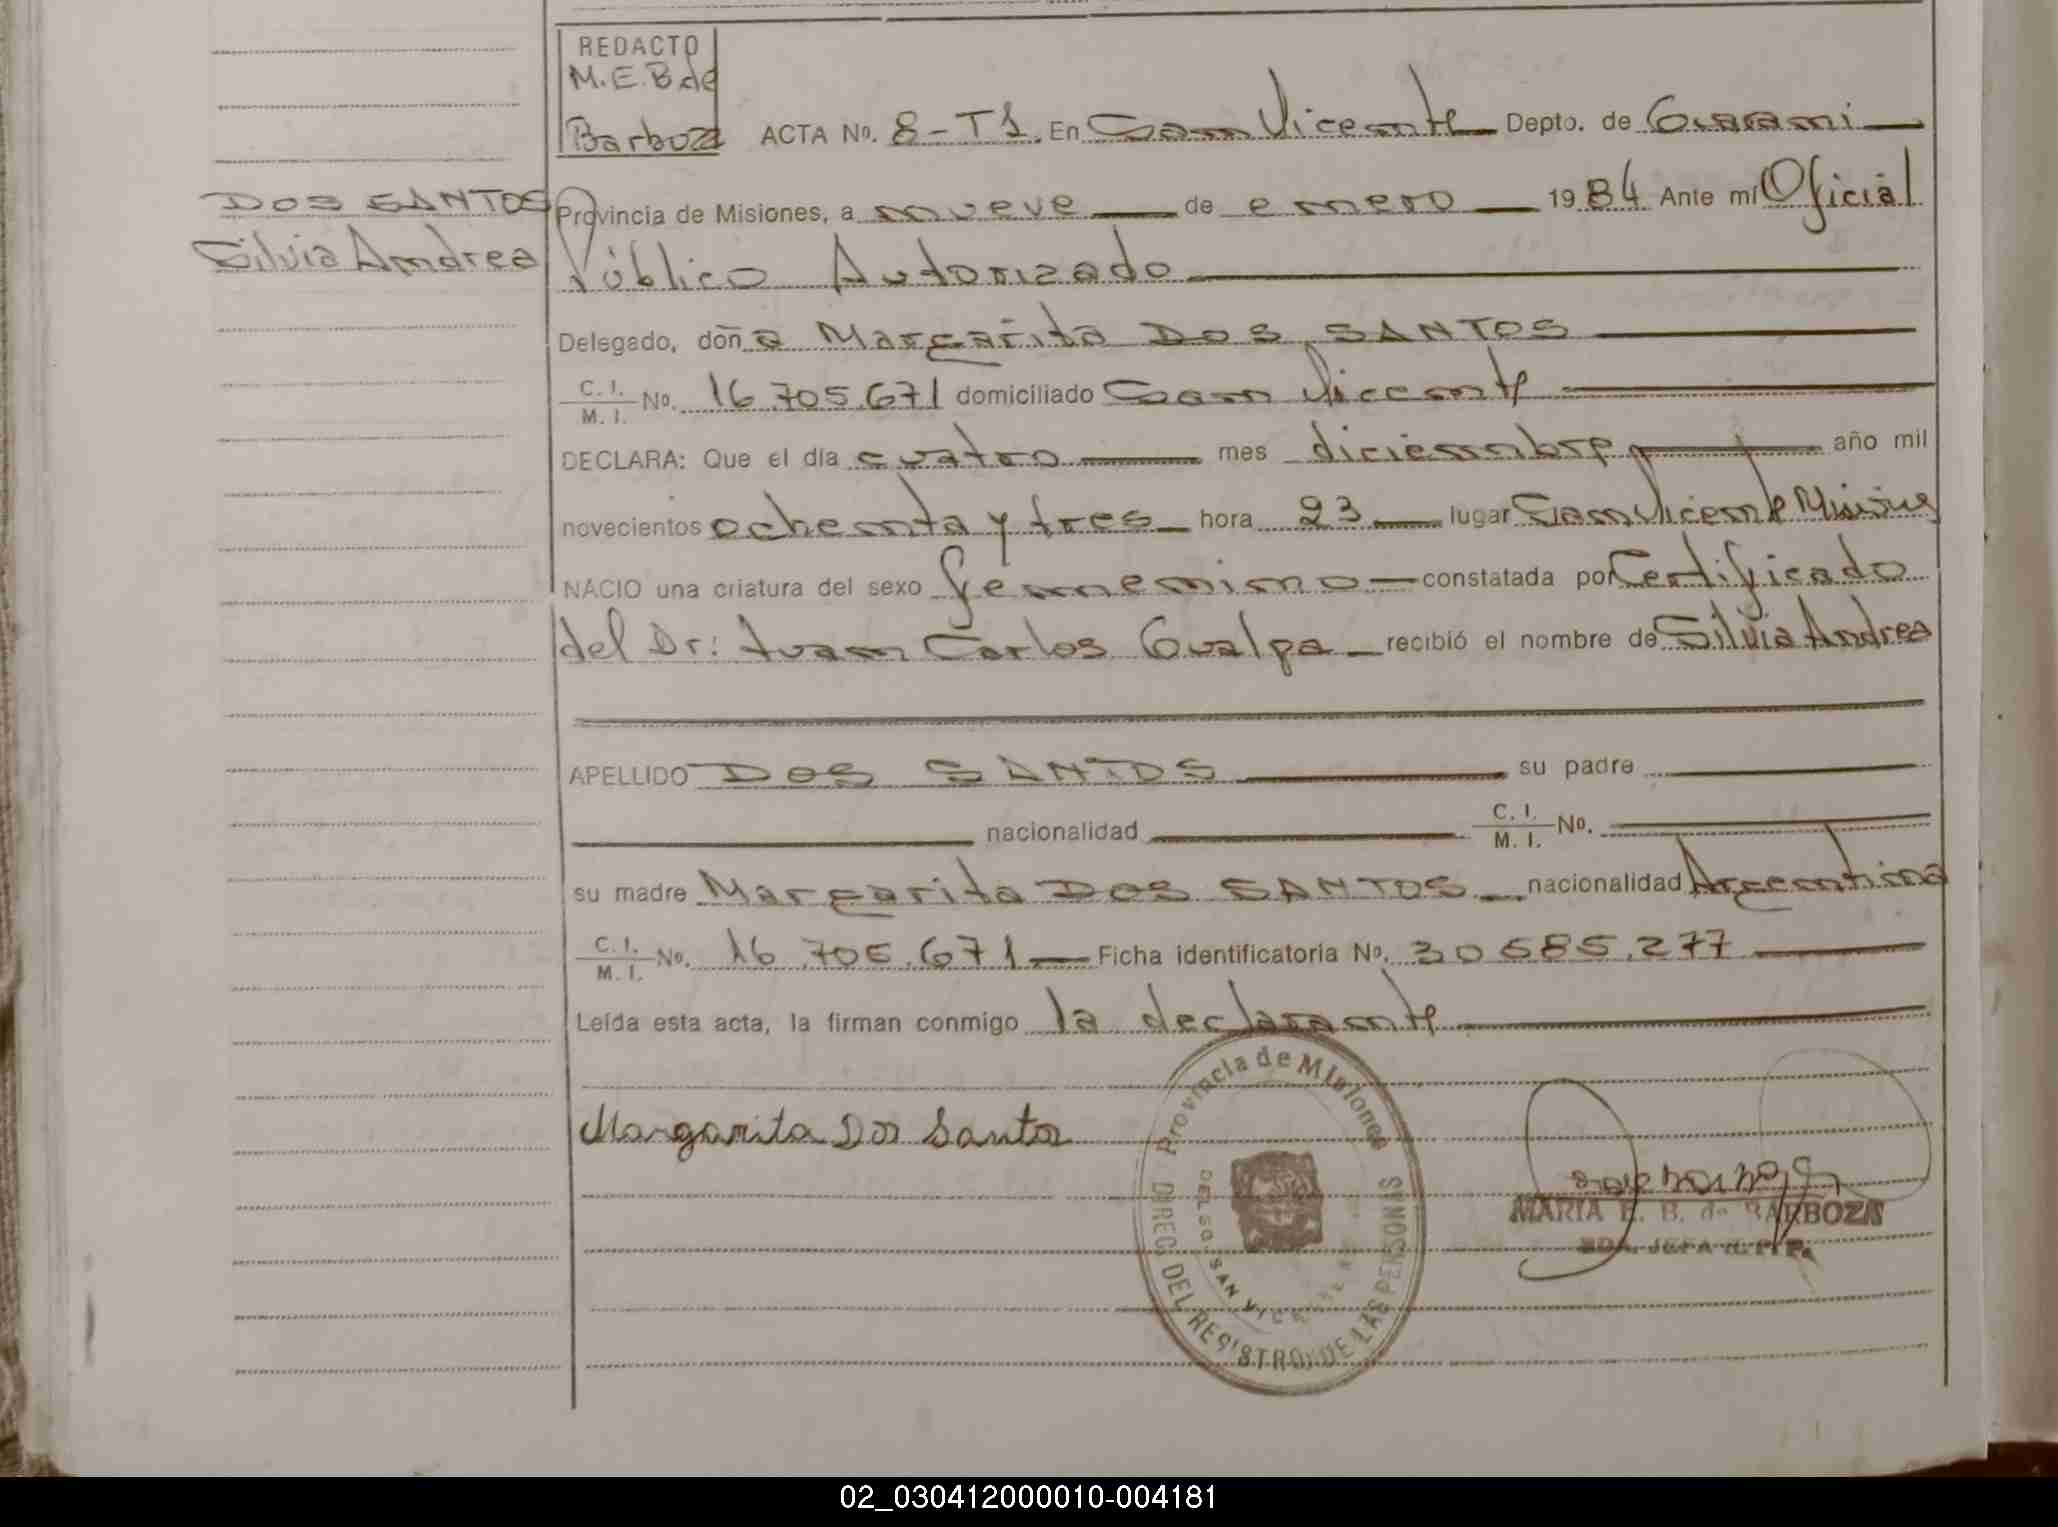 REDACTO
M.E.B.de
Barboza ACTA No. 8-T1. En San Vicente Depto. de Guarani
DOS SANTOS
Silvia Andrea
Provincia de Misiones, a nueve de enero 1984 Ante mí Oficial
Público Autorizado
Delegado, doña Margarita DOS SANTOS
C. I. / M. I. No. 16.705.671 domiciliado San Vicente
DECLARA: Que el día cuatro mes diciembre año mil
novecientos ochenta y tres hora 23 lugar San Vicente Misiones
NACIO una criatura del sexo femenino constatada por Certificado
del Dr: Juan Carlos Gualpa recibió el nombre de Silvia Andrea
APELLIDO DOS SANTOS su padre
nacionalidad C. I. / M. I. No.
su madre Margarita DOS SANTOS nacionalidad Argentina
C. I. / M. I. No. 16.705.671 Ficha identificatoria No. 30.685.277
Leída esta acta, la firman conmigo la declarante
Margarita Dos Santos
Provincia de Misiones
DIREC. DEL REGISTRO DE LAS PERSONAS
SAN VICENTE
MARIA E. B. de BARBOZA
JEFA
02_030412000010-004181